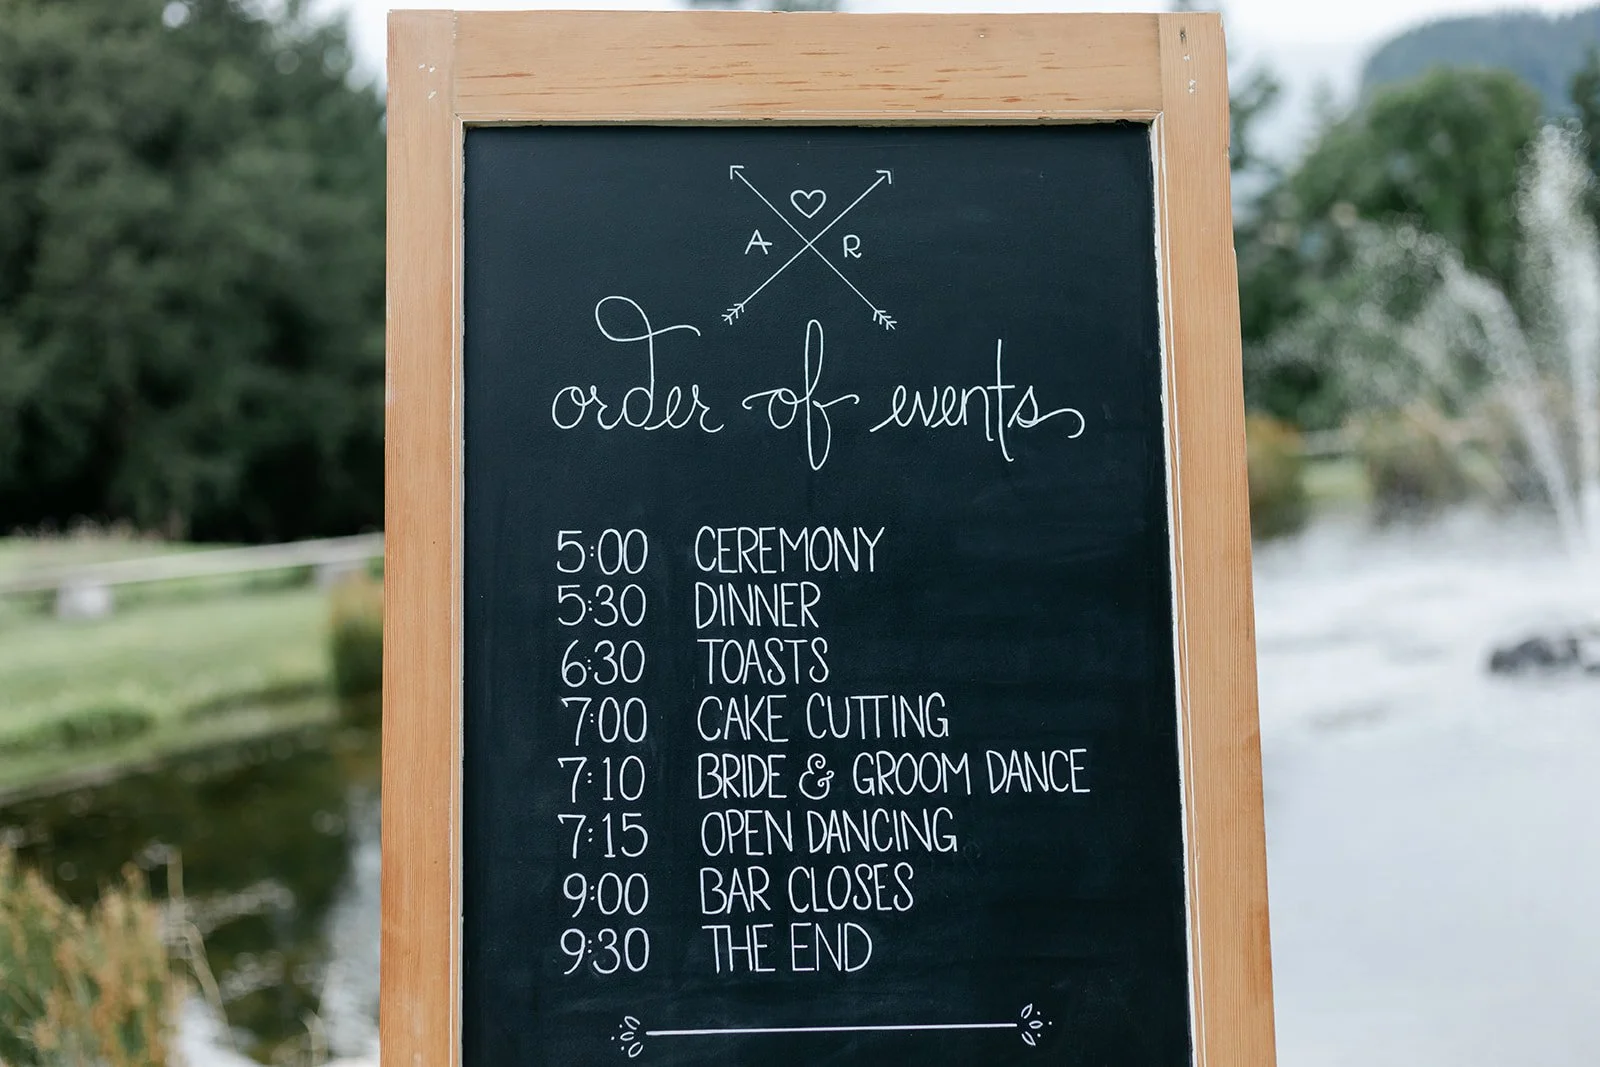 A R
order of events
5:00 CEREMONY
5:30 DINNER
6:30 TOASTS
7:00 CAKE CUTTING
7:10 BRIDE & GROOM DANCE
7:15 OPEN DANCING
9:00 BAR CLOSES
9:30 THE END